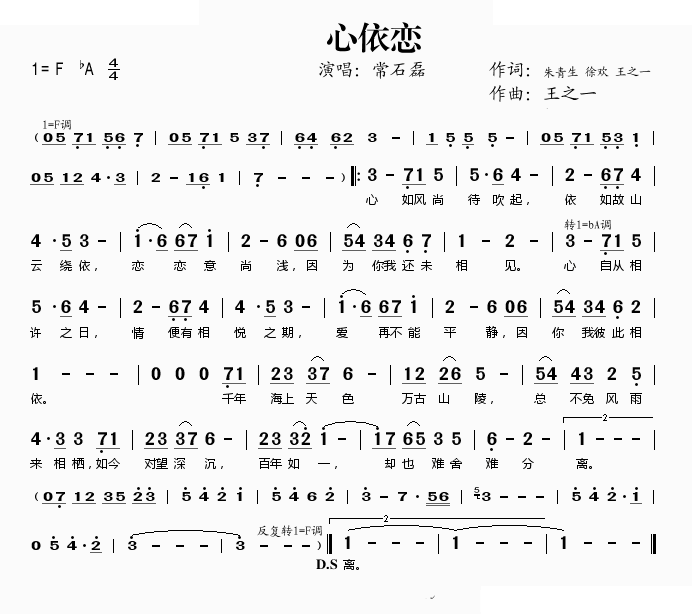 心依恋
1=F ♭A 4/4
演唱：常石磊
作词：朱青生 徐欢 王之一
作曲：王之一
1=F调
( 05 71 56 7 | 05 71 5 37 | 64 62 3 - | 1 5 5 5 - | 05 71 53 1 |
05 12 4·3 | 2 - 16 1 | 7 - - - ) ‖: 3 - 71 5 | 5·6 4 - | 2 - 67 4 |
心 如风 尚 待 吹 起， 依 如故 山
转1=bA调
4·5 3 - | 1·6 67 1 | 2 - 6 06 | 54 34 6 7 | 1 - 2 - | 3 - 71 5 |
云 绕 依， 恋 恋 意 尚 浅，因 为 你我 还 未 相 见。 心 自从 相
5·6 4 - | 2 - 67 4 | 4·5 3 - | 1·6 67 1 | 2 - 6 06 | 54 34 6 2 |
许 之 日， 情 便有 相 悦 之 期， 爱 再不 能 平 静，因 你 我彼 此 相
1 - - - | 0 0 0 71 | 23 37 6 - | 12 26 5 - | 54 43 2 5 |
依。 千年 海上 天 色 万古 山 陵， 总 不免 风 雨
2
4·3 3 71 | 23 37 6 - | 23 32 1 - | 17 65 3 5 | 6 - 2 - | 1 - - - |
来 相 栖，如今 对望 深 沉， 百年 如 一， 却也 难 舍 难 分 离。
( 07 12 35 23 | 5 4 2 1 | 5 4 6 2 | 3 - 7 - 56 | 3 - - - | 5 4 2·1 |
反复转1=F调
2
0 5 4·2 | 3 - - - | 3 - - - ) :‖ 1 - - - | 1 - - - | 1 - - - ‖
D.S 离。